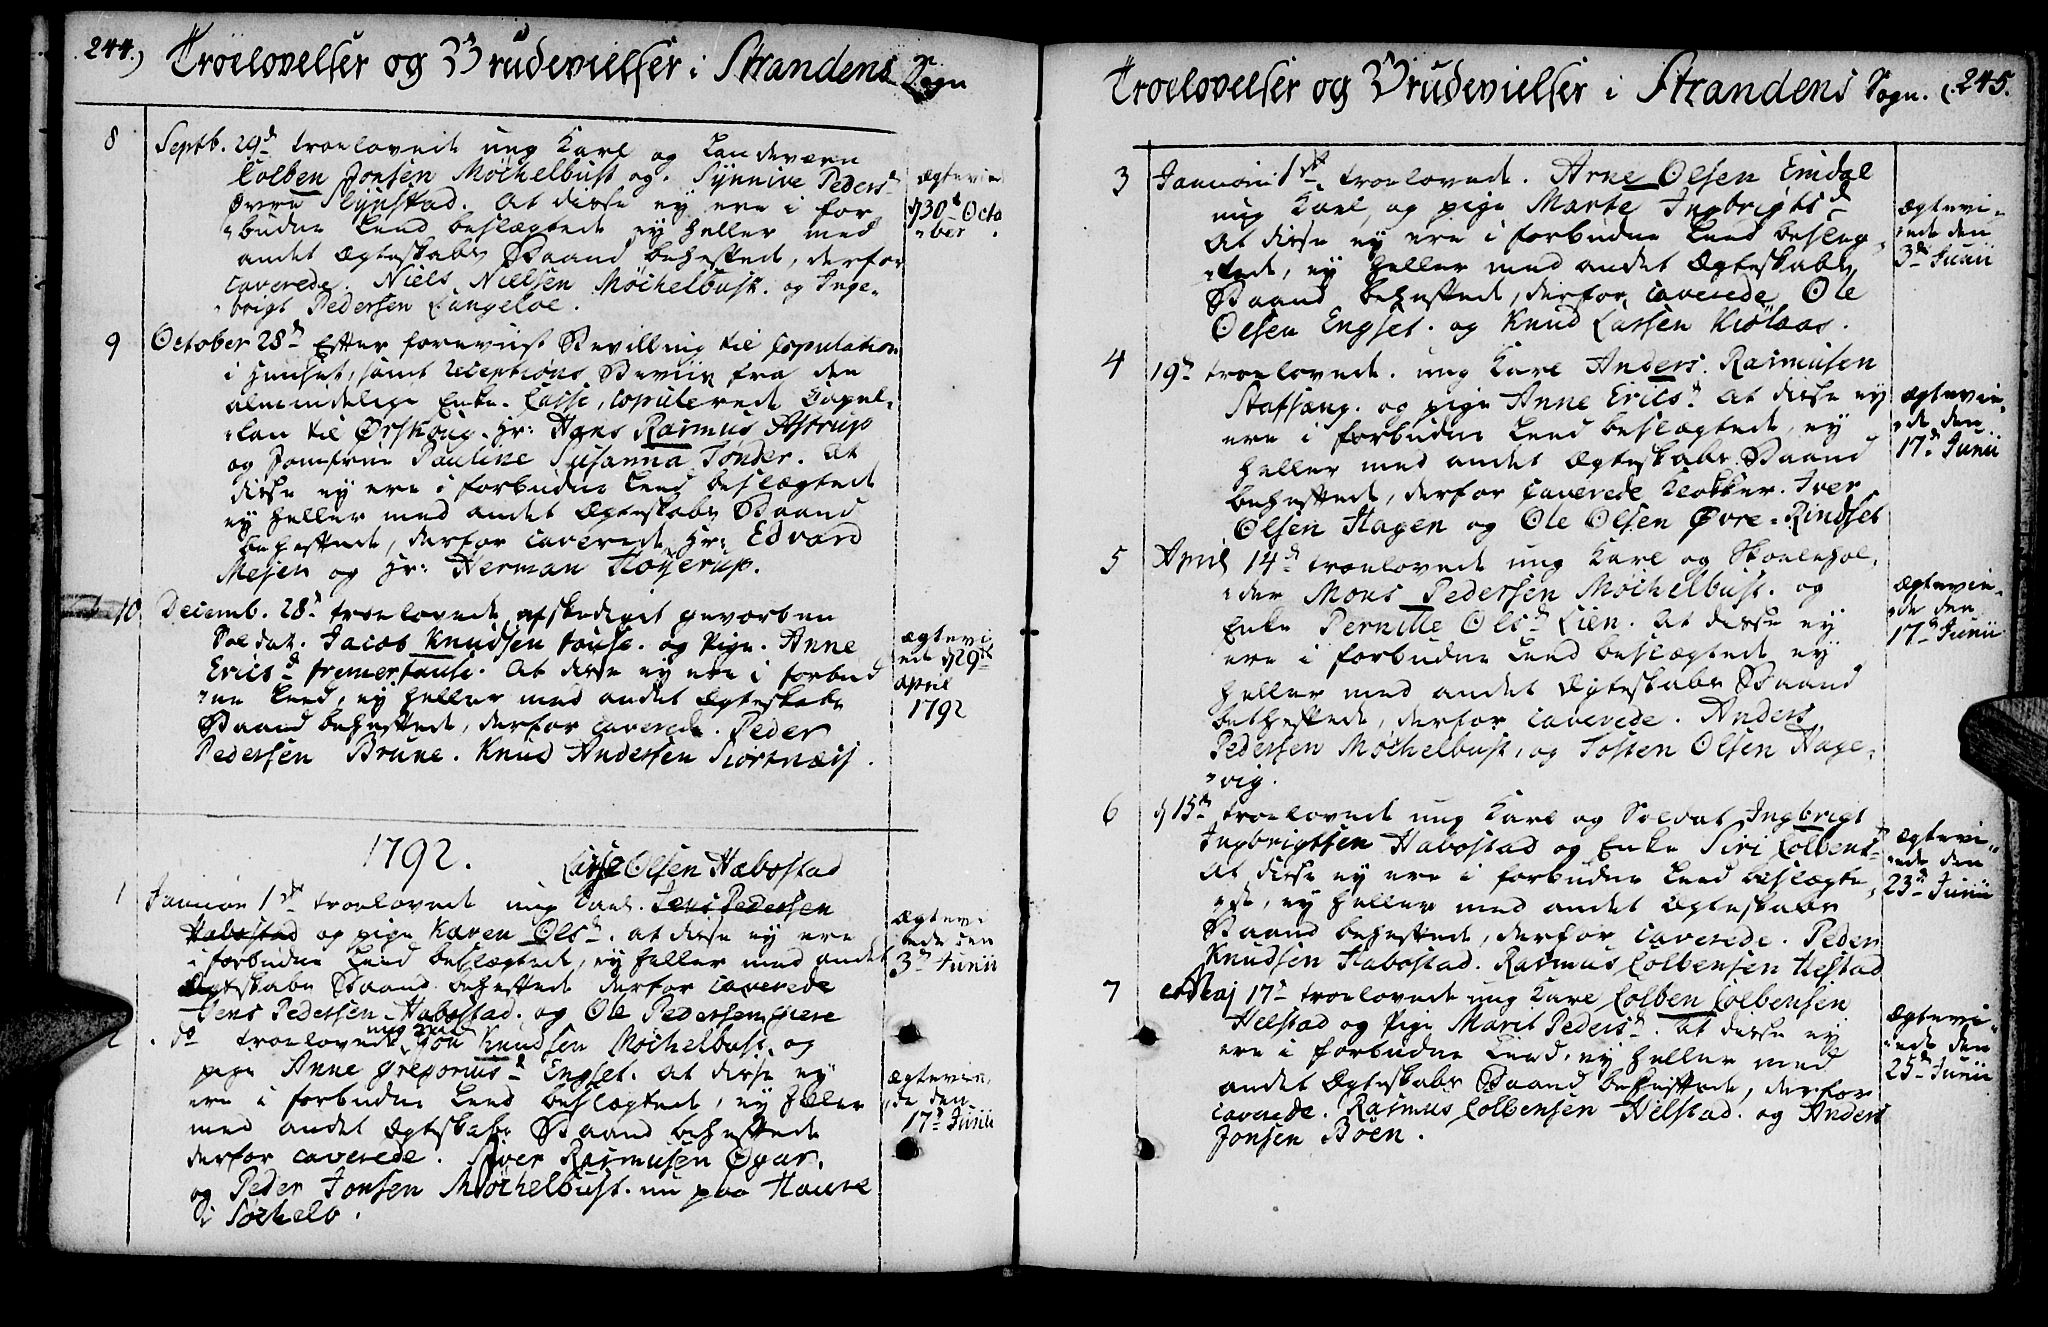 244.) Troelovelser og Brudevielser i Strandens Sogn
8 Septb. 29d troelovede ung Karl og Landevern
Colben Jonsen Møchelbust og. Synnive Pedersd
Øvre Slynstad. At disse ey ere i for
budne Leed beslægtede ey heller med
andet Ægteskabs Baand behefftede, derfor
caverede. Niels Nielsen Møchelbust. og Inge-
brigt Pedersen Langeloe.
Ægtevie
d 30te Octo
ber.
9 October 28d Efter foreviist Bevilling til Copulation
i Huuset, samt Receptions Beviis fra den
almindelige Enke-Casse, copulerede Capel-
lan til Ørskoug. Hr: Hans Rasmus Astrup
og Jomfrue Pauline Susanna Tønder. At
disse ey ere i forbudne Leed beslægtede
ey heller med andet Ægteskabs Baand
behefftede, derfor caverede Hr: Edvard
Mejen og Hr: Herman Høyerup.
10 Decemb. 28d troelovede afskediget gevorben
Soldat. Jacob Knudsen fause. og Pige. Anne
Ericsd fremerfause. At disse ey ere i forbud
ne Leed, ey heller med andet Ægteskabs
Baand behefftede, derfor caverede. Peder
Pedersen Brune. Knud Andersen Siortnæss.
Ægtevi
ede d 29de
April
1792
1792.
Lasse Olsen Habostad
1 Januari 1ste troelovede ung Carl. Jens Pedersen
Habostad og pige Karen Olsd. at disse ey ere
i forbudne Leed beslægtede, ey heller med andet
Ægteskabs Baand behefftede derfor caverede
Jens Pedersen Habostad. og Ole Pedersen Giere
Ægtevi
ede den
3d Junii
2 . do troelovede ung Karl Jon Knudsen Møchelbust. og
pige Anne Gregoriusd Engset. at disse ey
ere i forbudne Leed beslægtede, ey heller
med andet Ægteskabs Baand behefftede
derfor caverede. Iver Rasmusen Øgar.
og Peder Jonsen Møchelbust. nu paa Haure
i Søchelv.
Ægtevie,
de den
17d Junii
Troelovelser og Brudevielser i Strandens Sogn. (.245.
3 Januari 1ste troelovede. Arne Olsen Emdal
ung Karl, og pige Marte Ingbrigtsd
At disse ey ere i forbudne Leed beslæg
tede, ey heller med andet Ægteskabs
Baand behefftede, derfor caverede Ole
Olsen Engset. og Knud Larsen Kiølaas.
Ægtevi-
ede den
3de Junii
4 19d troelovede. ung Karl Anders Rasmusen
Stafsang. og pige Anne Ericsd At disse ey
ere i forbudne Leed beslægtede, ey
heller med andet Ægteskabs Baand
behefftede, derfor caverede Klokker. Iver
Olsen Hagen og Ole Olsen Øvre-Rindset
Ægtevie,
de den
17d Junii
5 April 14d troelovede ung Karl og Skolehol,
der Mons Pedersen Møchelbust. og
Enke Pernille Olsd Lien. At disse ey
ere i forbudne Leed beslægtede ey
heller med andet Ægteskabs Baand
behefftede, derfor caverede. Anders
Pedersen Møchelbust, og Tosten Olsen Hage,
vig.
Ægtevie-
de den
17d Junii
6 d 15d troelovede ung Karl og Soldat Ingbrigt
Ingbrigtsen Habostad og Enke Siri Colbensd
At disse ey ere i forbudne Leed beslægte,
de, ey heller med andet Ægteskabs
Baand behefftede, derfor caverede. Peder
Knudsen Habostad. Rasmus Colbensen Helstad
Ægtevi-
ede den
23de Junii
7 Maj 17d troelovede ung Karl Colben Colbensen
Helstad og Pige Marit Pedersd. At disse ey
ere i forbudne Leed, ey heller med
andet Ægteskabs Baand behefftede, derfor
caverede. Rasmus Colbensen Helstad. og Anders
Jonsen Boen.
Ægtevi-
ede den
25d Junii